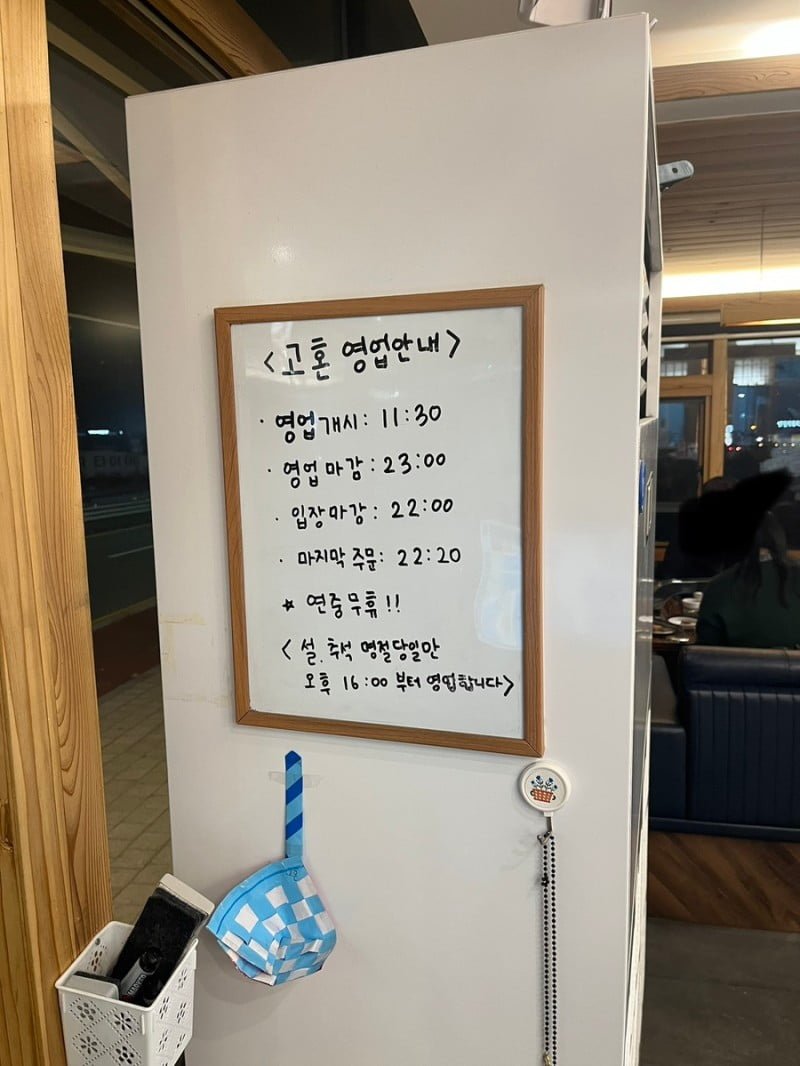 <고혼 영업안내>
· 영업개시: 11:30
· 영업 마감: 23:00
· 입장마감: 22:00
· 마지막 주문: 22:20
★ 연중무휴!!
< 설, 추석 명절당일만
오후 16:00 부터 영업합니다>